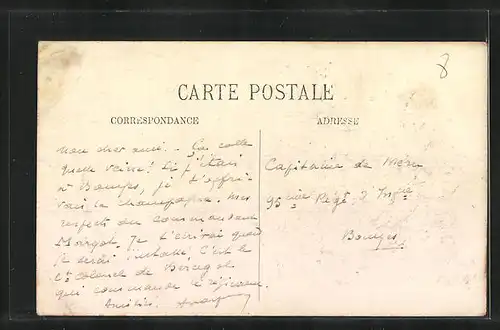 8
CARTE POSTALE
CORRESPONDANCE
ADRESSE
mon cher ami. Ça colle
quelle veine! Si j'étais
à Bourges, je t'offri-
rais le champagne. Mes
respects au commandant
Mirgot. Je t'écrirai quand
je serai installé. C'est le
Lt Colonel de
qui commande le régiment.
Amitiés.
Capitaine de
95ième Régt d'Inf
Bourges